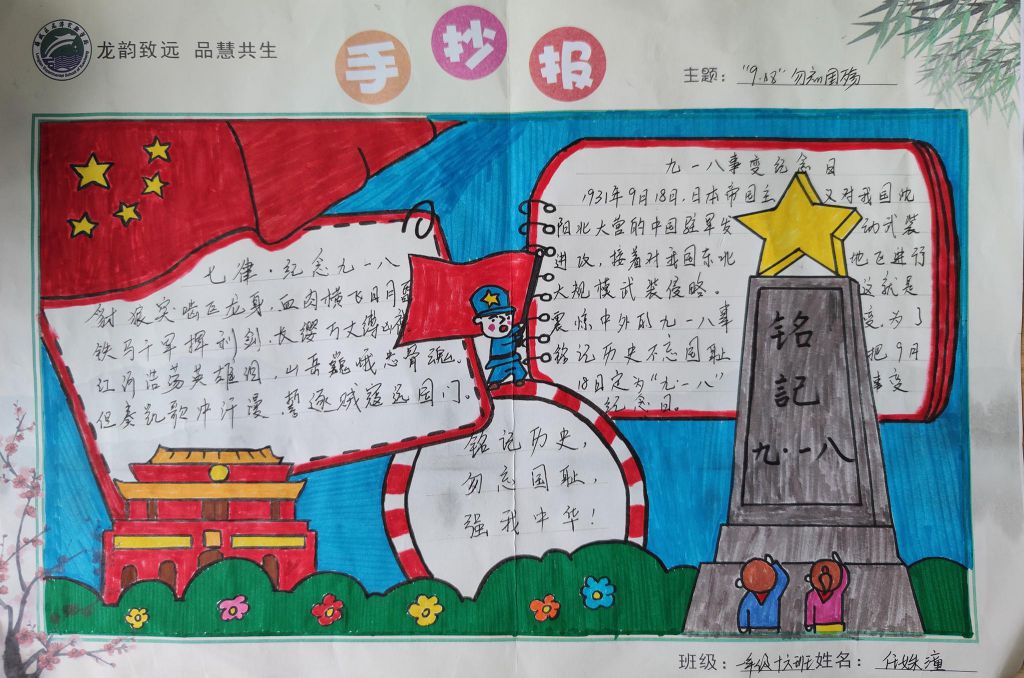 龙韵致远 品慧共生
手抄报
主题："9.18"勿忘国殇
七律·纪念九一八
豺狼突啮巨龙身,血肉横飞日月
铁马千军挥利剑,长缨万丈缚
江河浩荡英雄泪,山岳巍峨忠骨魂。
但奏凯歌冲汗漫,誓逐贼寇远国门。
九一八事变纪念日
1931年9月18日,日本帝国主 又对我国沈
阳北大营的中国驻军发 动武装
进攻,接着对我国东北 地飞进行
大规模武装侵略。 这就是
震惊中外的九一八事 变为了
铭记历史不忘国耻 把9月
18日定为"九·一八" 事变
纪念日。
铭记历史,
勿忘国耻,
强我中华!
铭
記
九·一八
班级：一年级十六班 姓名：任姝潼